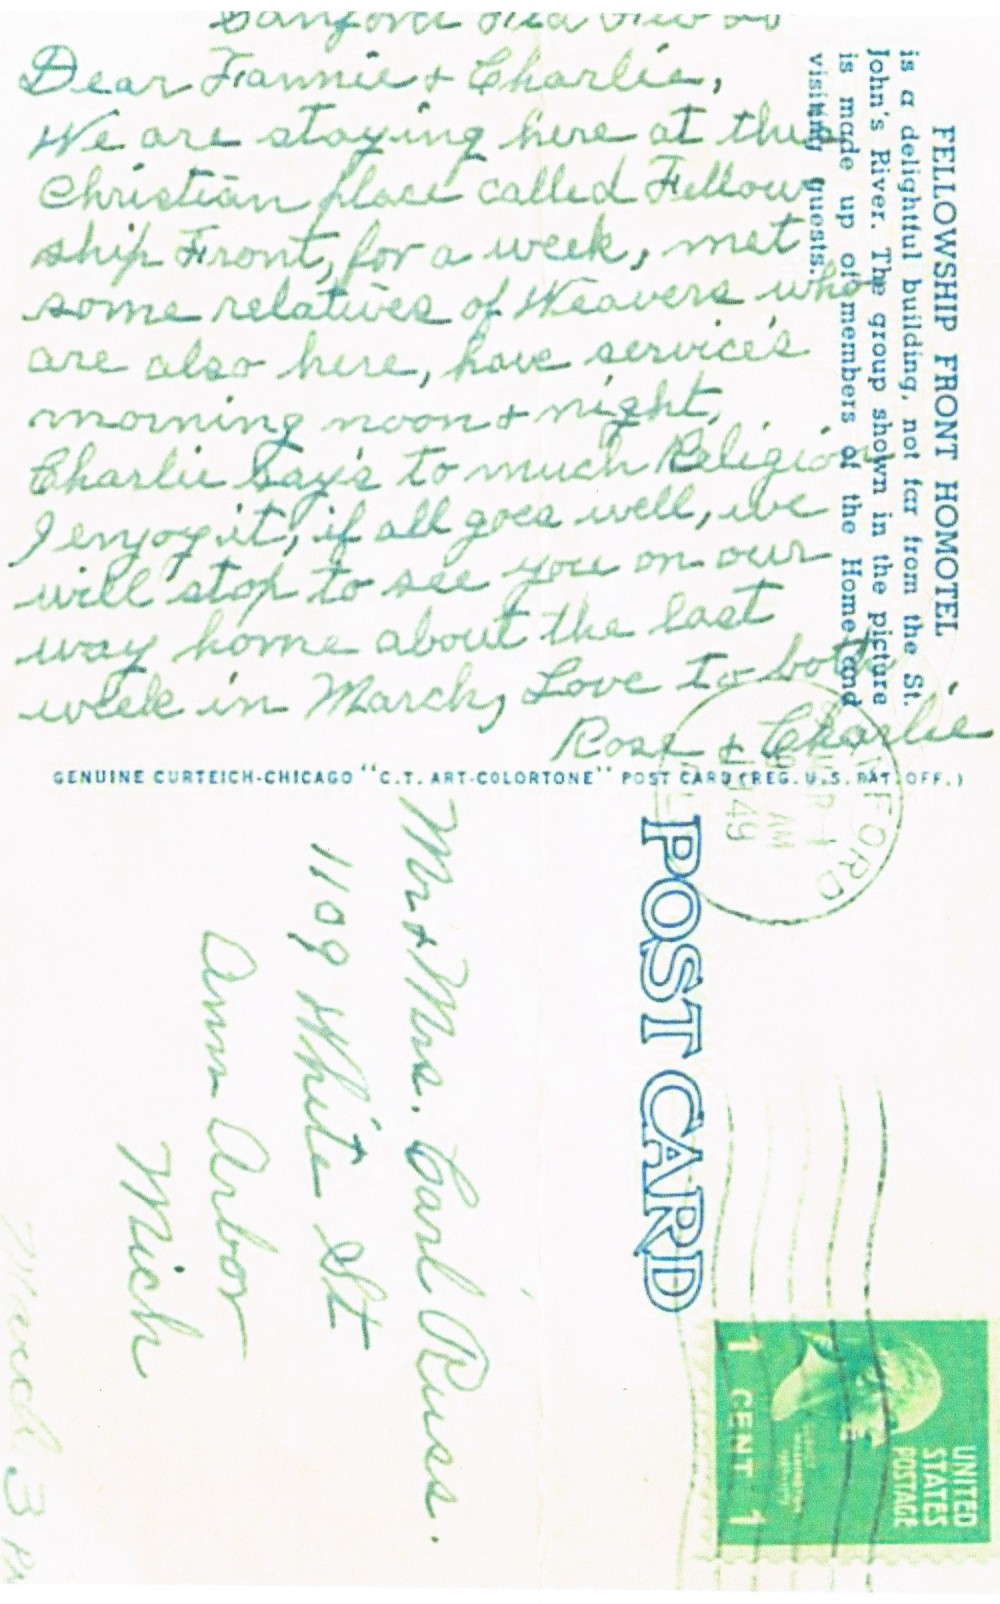 Sanford Fla Feb 28
Dear Fannie & Charlie,
We are staying here at this
Christian place called Fellow
ship Front, for a week, met
some relatives of Weavers who
are also here, have service's
morning noon & night,
Charlie Say's to much Religion
I enjoy it, if all goes well, we
will stop to see you on our
way home about the last
week in March, Love to both
Rose & Charlie
FELLOWSHIP FRONT HOMOTEL
is a delightful building, not far from the St.
John's River. The group shown in the picture
is made up of members of the Home and
visiting guests.
GENUINE CURTEICH-CHICAGO "C.T. ART-COLORTONE" POST CARD (REG. U.S. PAT. OFF.)
POST CARD
SANFORD
MAR 1
AM
1949
UNITED
STATES
POSTAGE
1 CENT 1
Mr & Mrs. Carl Russ.
1109 White St
Ann Arbor
Mich
March 3